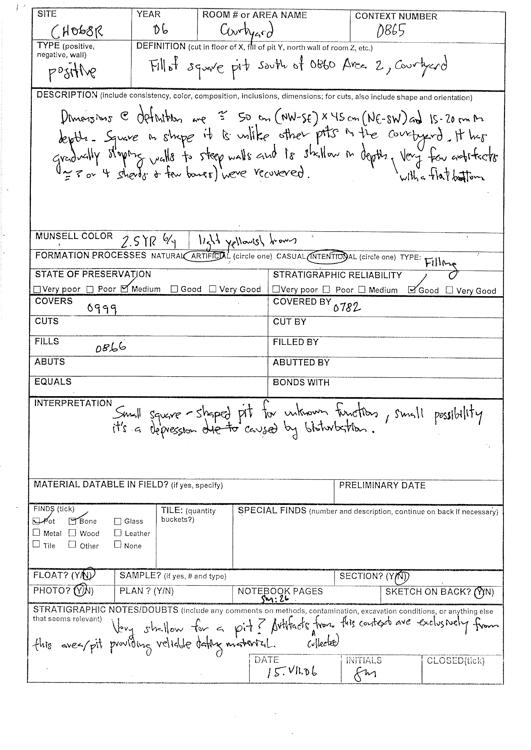 SITE
CH06SR
YEAR
06
ROOM # or AREA NAME
Courtyard
CONTEXT NUMBER
0865
TYPE (positive, negative, wall)
positive
DEFINITION (cut in floor of X, fill of pit Y, north wall of room Z, etc.)
Fill of square pit south of 0860 Area 2, Courtyard
DESCRIPTION (include consistency, color, composition, inclusions, dimensions; for cuts, also include shape and orientation)
Dimensions @ definition are ≅ 50 cm (NW-SE) x 45 cm (NE-SW) and 15-20 cm in
depth. Square in shape it is unlike other pits in the courtyard. It has
gradually sloping walls to steep walls and is shallow in depth, with a flat bottom
Very few artifacts
≅ 3 or 4 sherds & few bones) were recovered.
MUNSELL COLOR 2.5YR 6/4 light yellowish brown
FORMATION PROCESSES NATURAL ARTIFICIAL (circle one) CASUAL INTENTIONAL (circle one) TYPE: Filling
STATE OF PRESERVATION
Very poor Poor Medium Good Very Good
STRATIGRAPHIC RELIABILITY
Very poor Poor Medium Good Very Good
COVERS 0999
COVERED BY 0782
CUTS
CUT BY
FILLS 0866
FILLED BY
ABUTS
ABUTTED BY
EQUALS
BONDS WITH
INTERPRETATION
Small square-shaped pit for unknown function, small possibility
it's a depression due to caused by bioturbation.
MATERIAL DATABLE IN FIELD? (if yes, specify)
PRELIMINARY DATE
FINDS (tick)
Pot Bone Glass
Metal Wood Leather
Tile Other None
TILE: (quantity buckets?)
SPECIAL FINDS (number and description, continue on back if necessary)
FLOAT? (Y/N)
SAMPLE? (if yes, # and type)
SECTION? (Y/N)
PHOTO? (Y/N)
PLAN ? (Y/N)
NOTEBOOK PAGES
SM: 26
SKETCH ON BACK? (Y/N)
STRATIGRAPHIC NOTES/DOUBTS (Include any comments on methods, contamination, excavation conditions, or anything else that seems relevant)
Very shallow for a pit? Artifacts collected from this context are exclusively from
this area/pit providing reliable dating material.
DATE
15.VII.06
INITIALS
SM
CLOSED(tick)